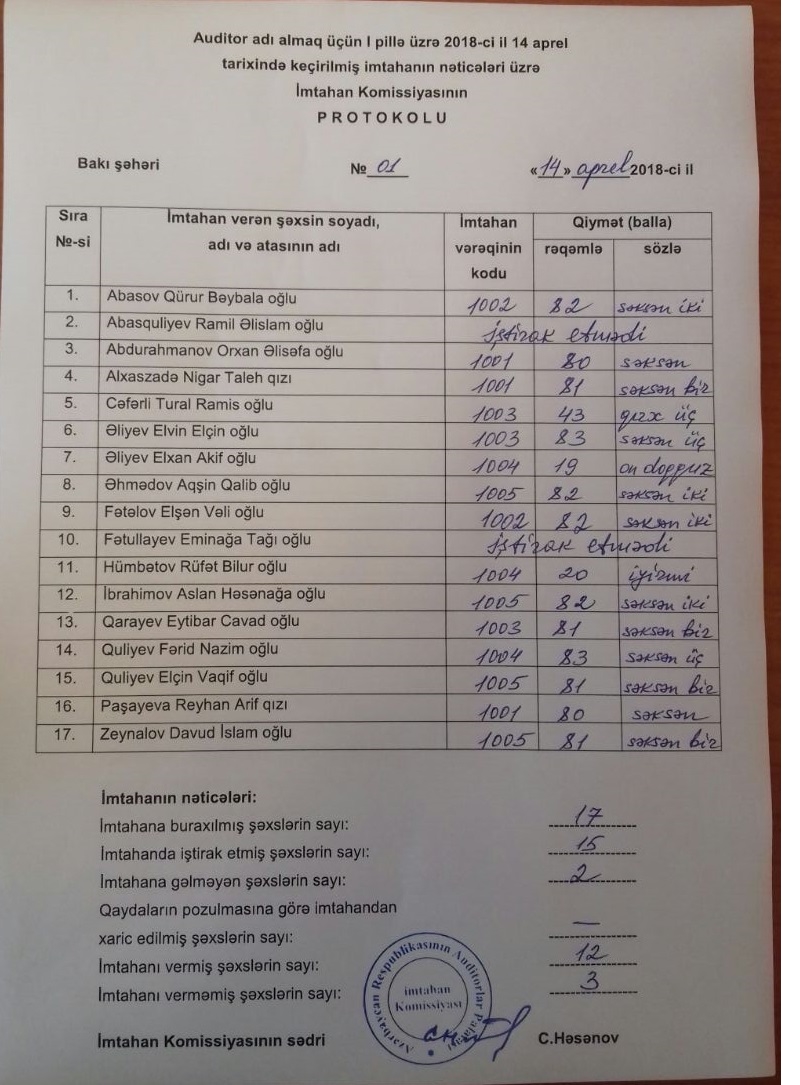 Auditor adı almaq üçün I pillə üzrə 2018-ci il 14 aprel
tarixində keçirilmiş imtahanın nəticələri üzrə
İmtahan Komissiyasının
PROTOKOLU
Bakı şəhəri № 01 «14» aprel 2018-ci il
Sıra №-si İmtahan verən şəxsin soyadı, adı və atasının adı İmtahan vərəqinin kodu Qiymət (balla) rəqəmlə sözlə
1. Abasov Qürur Bəybala oğlu 1002 82 səksən iki
2. Abasquliyev Ramil Əlislam oğlu iştirak etmədi
3. Abdurahmanov Orxan Əlisəfa oğlu 1001 80 səksən
4. Alxaszadə Nigar Taleh qızı 1001 81 səksən bir
5. Cəfərli Tural Ramis oğlu 1003 43 qırx üç
6. Əliyev Elvin Elçin oğlu 1003 83 səksən üç
7. Əliyev Elxan Akif oğlu 1004 19 on doqquz
8. Əhmədov Aqşin Qalib oğlu 1005 82 səksən iki
9. Fətəlov Elşən Vəli oğlu 1002 82 səksən iki
10. Fətullayev Eminağa Tağı oğlu iştirak etmədi
11. Hümbətov Rüfət Bilur oğlu 1004 20 iyirmi
12. İbrahimov Aslan Həsənağa oğlu 1005 82 səksən iki
13. Qarayev Eytibar Cavad oğlu 1003 81 səksən bir
14. Quliyev Fərid Nazim oğlu 1004 83 səksən üç
15. Quliyev Elçin Vaqif oğlu 1005 81 səksən bir
16. Paşayeva Reyhan Arif qızı 1001 80 səksən
17. Zeynalov Davud İslam oğlu 1005 81 səksən bir
İmtahanın nəticələri:
İmtahana buraxılmış şəxslərin sayı: 17
İmtahanda iştirak etmiş şəxslərin sayı: 15
İmtahana gəlməyən şəxslərin sayı: 2
Qaydaların pozulmasına görə imtahandan
xaric edilmiş şəxslərin sayı: —
İmtahanı vermiş şəxslərin sayı: 12
İmtahanı verməmiş şəxslərin sayı: 3
Azərbaycan Respublikasının Auditorlar Palatası
imtahan
Komissiyası
İmtahan Komissiyasının sədri C.Həsənov